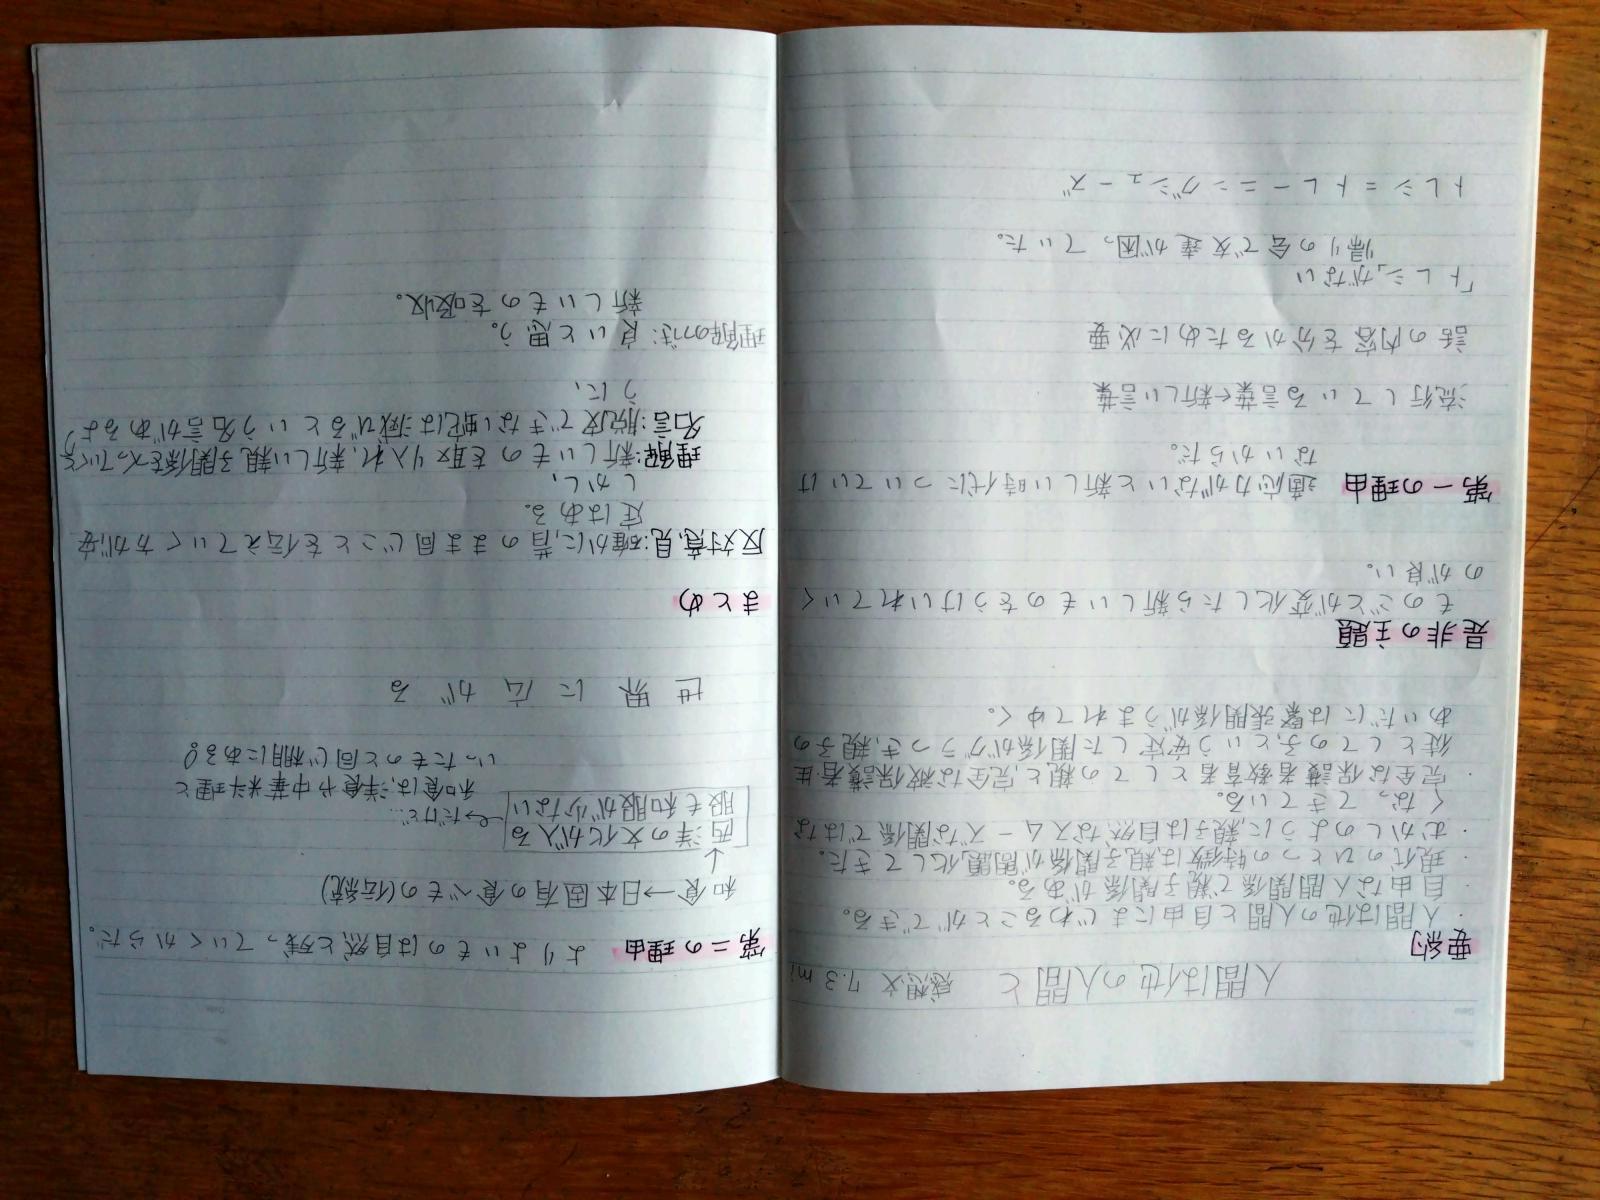 人間は他の人間と 感想文 7.3 mi
要約
・人間は他の人間と自由にまじわることができる。
・自由な人間関係で親子関係がある。
・現代のひとつの特徴は、親子関係が問題化してきた。
・むかしのように、親子は自然なスムーズな関係ではな
くなってきている。
・完全な保護者教育者としての親と、完全な被保護者・生
徒としての子、という安定した関係がぐらつき、親子の
あいだには緊張関係がうまれてゆく。
是非の主題
ものごとが変化したら新しいものをうけいれていく
のが良い。
第一の理由 適応力がないと新しい時代についていけ
ないからだ。
流行している言葉←新しい言葉
話の内容を分かるために必要
「トレシ」がない
帰りの会で友達が困っていた。
トレシ=トレーニングシューズ
第二の理由 よりよいものは自然と残っていくからだ。
和食→日本固有の食べもの(伝統)
西洋の文化が入る
服も和服が少ない
だけど…
和食は、洋食や中華料理と
いったものと同じ棚にある。
世界に広がる
まとめ
反対意見:確かに、昔のまま同じことを伝えていく方が安
定はある。
しかし、
理解:新しいものを取り入れ、新しい親子関係を
名言:脱皮できない蛇は滅びるという名言があるよ
うに、
理解の方法:良いと思う。
新しいものを吸収。